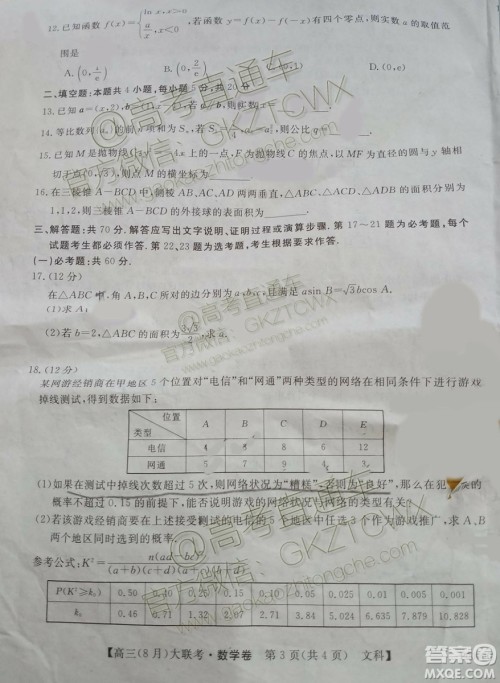 12.已知函数 f(x)={ ln x,x>0
a/x,x<0 ,若函数 y=f(x)-f(-x)有四个零点,则实数 a 的取值范
围是
A.(0,1/e) B.(0,2/e) D.(0,e)
二、填空题:本题共 4 小题,每小题 5 分,共 20 分.
13.已知 a=(x,2),b=
14.等比数列{aₙ}的前 n 项和为 Sₙ,若 则公比
15.已知 M 是抛物线 上的一点,E 为抛物线 C 的焦点,以 MF 为直径的圆与 y 轴相
切于点(0,√3),则点 M 的横坐标为
16.在三棱锥 A—BCD 中,侧棱 AB、AC、AD 两两垂直,△ABC、△ABD、△BCD 的面积分别为
1,1,2,则三棱锥 A—BCD 的外接球的表面积为
三、解答题:共 70 分.解答应写出文字说明、证明过程或演算步骤.第 17~21 题为必考题,每个
试题考生都必须作答.第 22、23 题为选考题,考生根据要求作答.
(一)必考题:共 60 分.
17.(12 分)
在△ABC 中,角 A,B,C 所对的边分别为 a,b,c,且满足 asin B=√3bcos A.
(1)求 A;
(2)若 b=2,△ABC 的面积为 3√3/2,求 a.
18.(12 分)
某网游经销商在甲地区 5 个位置对“电信”和“网通”两种类型的网络在相同条件下进行游戏
掉线测试,得到数据如下:
位置
类型 A B C D E
电信 4 8 6 12
网通 5 7 9 4 3
(1)如果在测试中掉线次数超过 5 次,则网络状况为“糟糕”,否则为“良好”,那么在犯 的
概率不超过 0.15 的前提下,能否说明游戏的网络状况与网络的类型有关?
(2)若该游戏经销商要在上述接受测试的 5 个地区中任选 2 个作为游戏推广,求 A、B
两个地区同时选到的概率.
参考公式:K²=n(ad-bc)²/(a+b)(c+d)(a+c)(b+d)
P(K²≥k₀) 0.50 0.40 0.25 0.15 0.10 0.05 0.025 0.010 0.005 0.001
k₀ 0.46 0.71 1.32 2.07 2.71 3.84 5.024 6.635 7.879 10.828
【高三(8 月)大联考·数学卷 第 3 页(共 4 页) 文科】
@高考直通车
官方微信:GKZTCWX
www.gaokaozhitongche.com